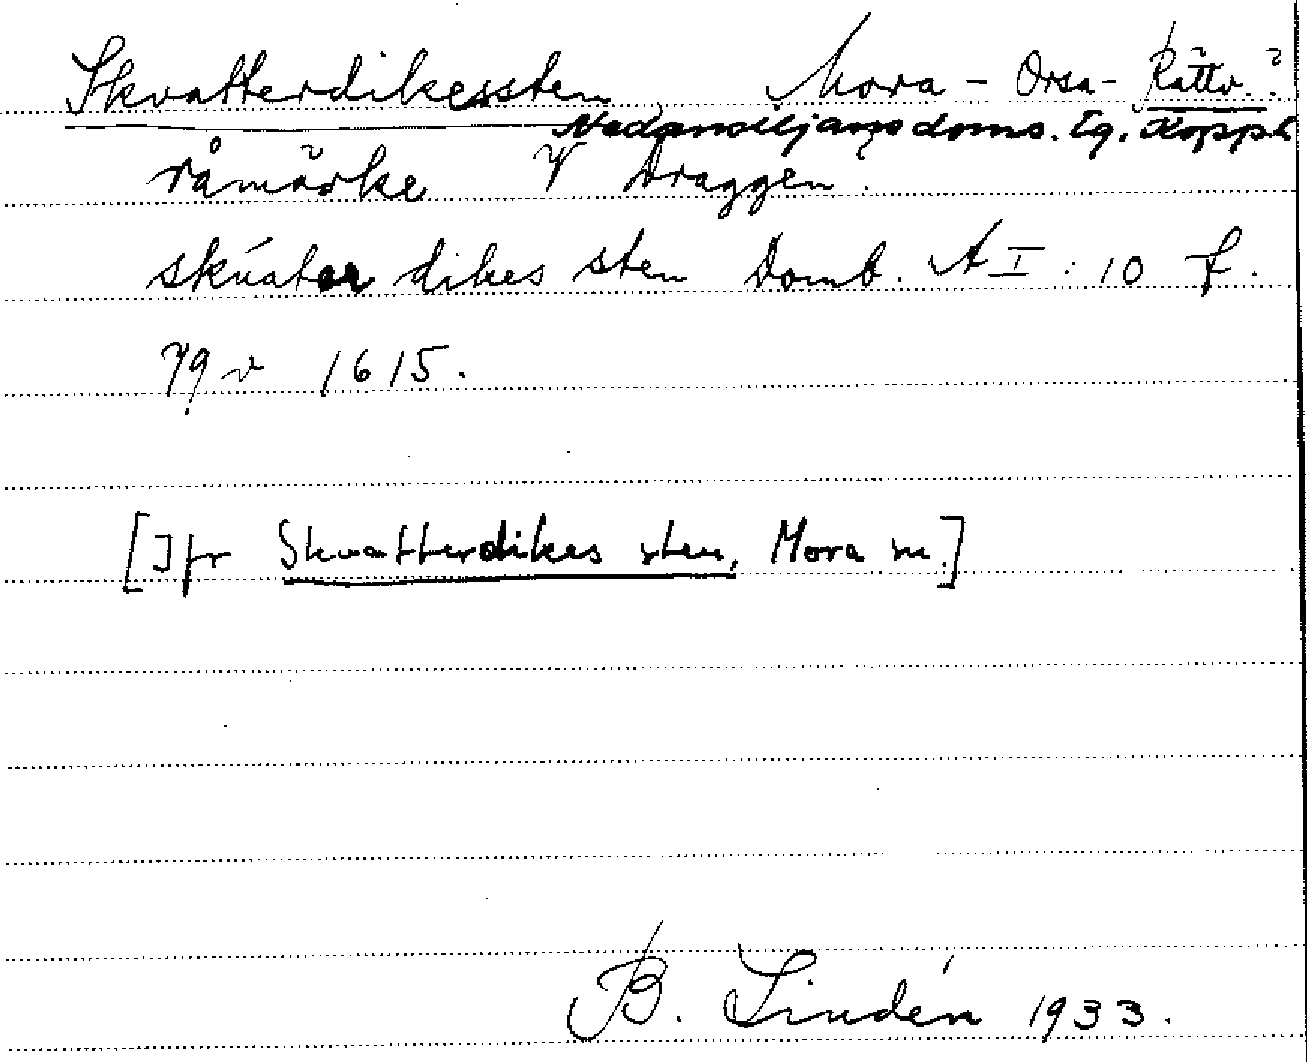 Skvatterdikessten Mora - Orsa - Rättv.?
Nedansiljans doms. lg. Koppb
råmärke V Draggen.
skuater dikes sten Domb. A I : 10 f.
79 v 1615.
[Jfr Skvatterdikes sten, Mora sn.]
B. Lindén 1933.